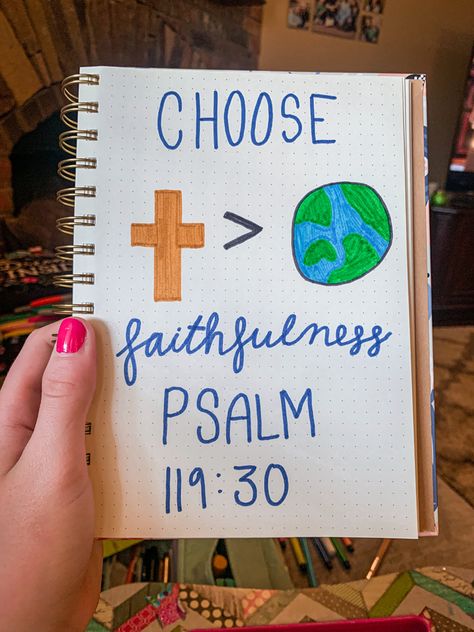 CHOOSE
>
faithfulness
PSALM
119:30